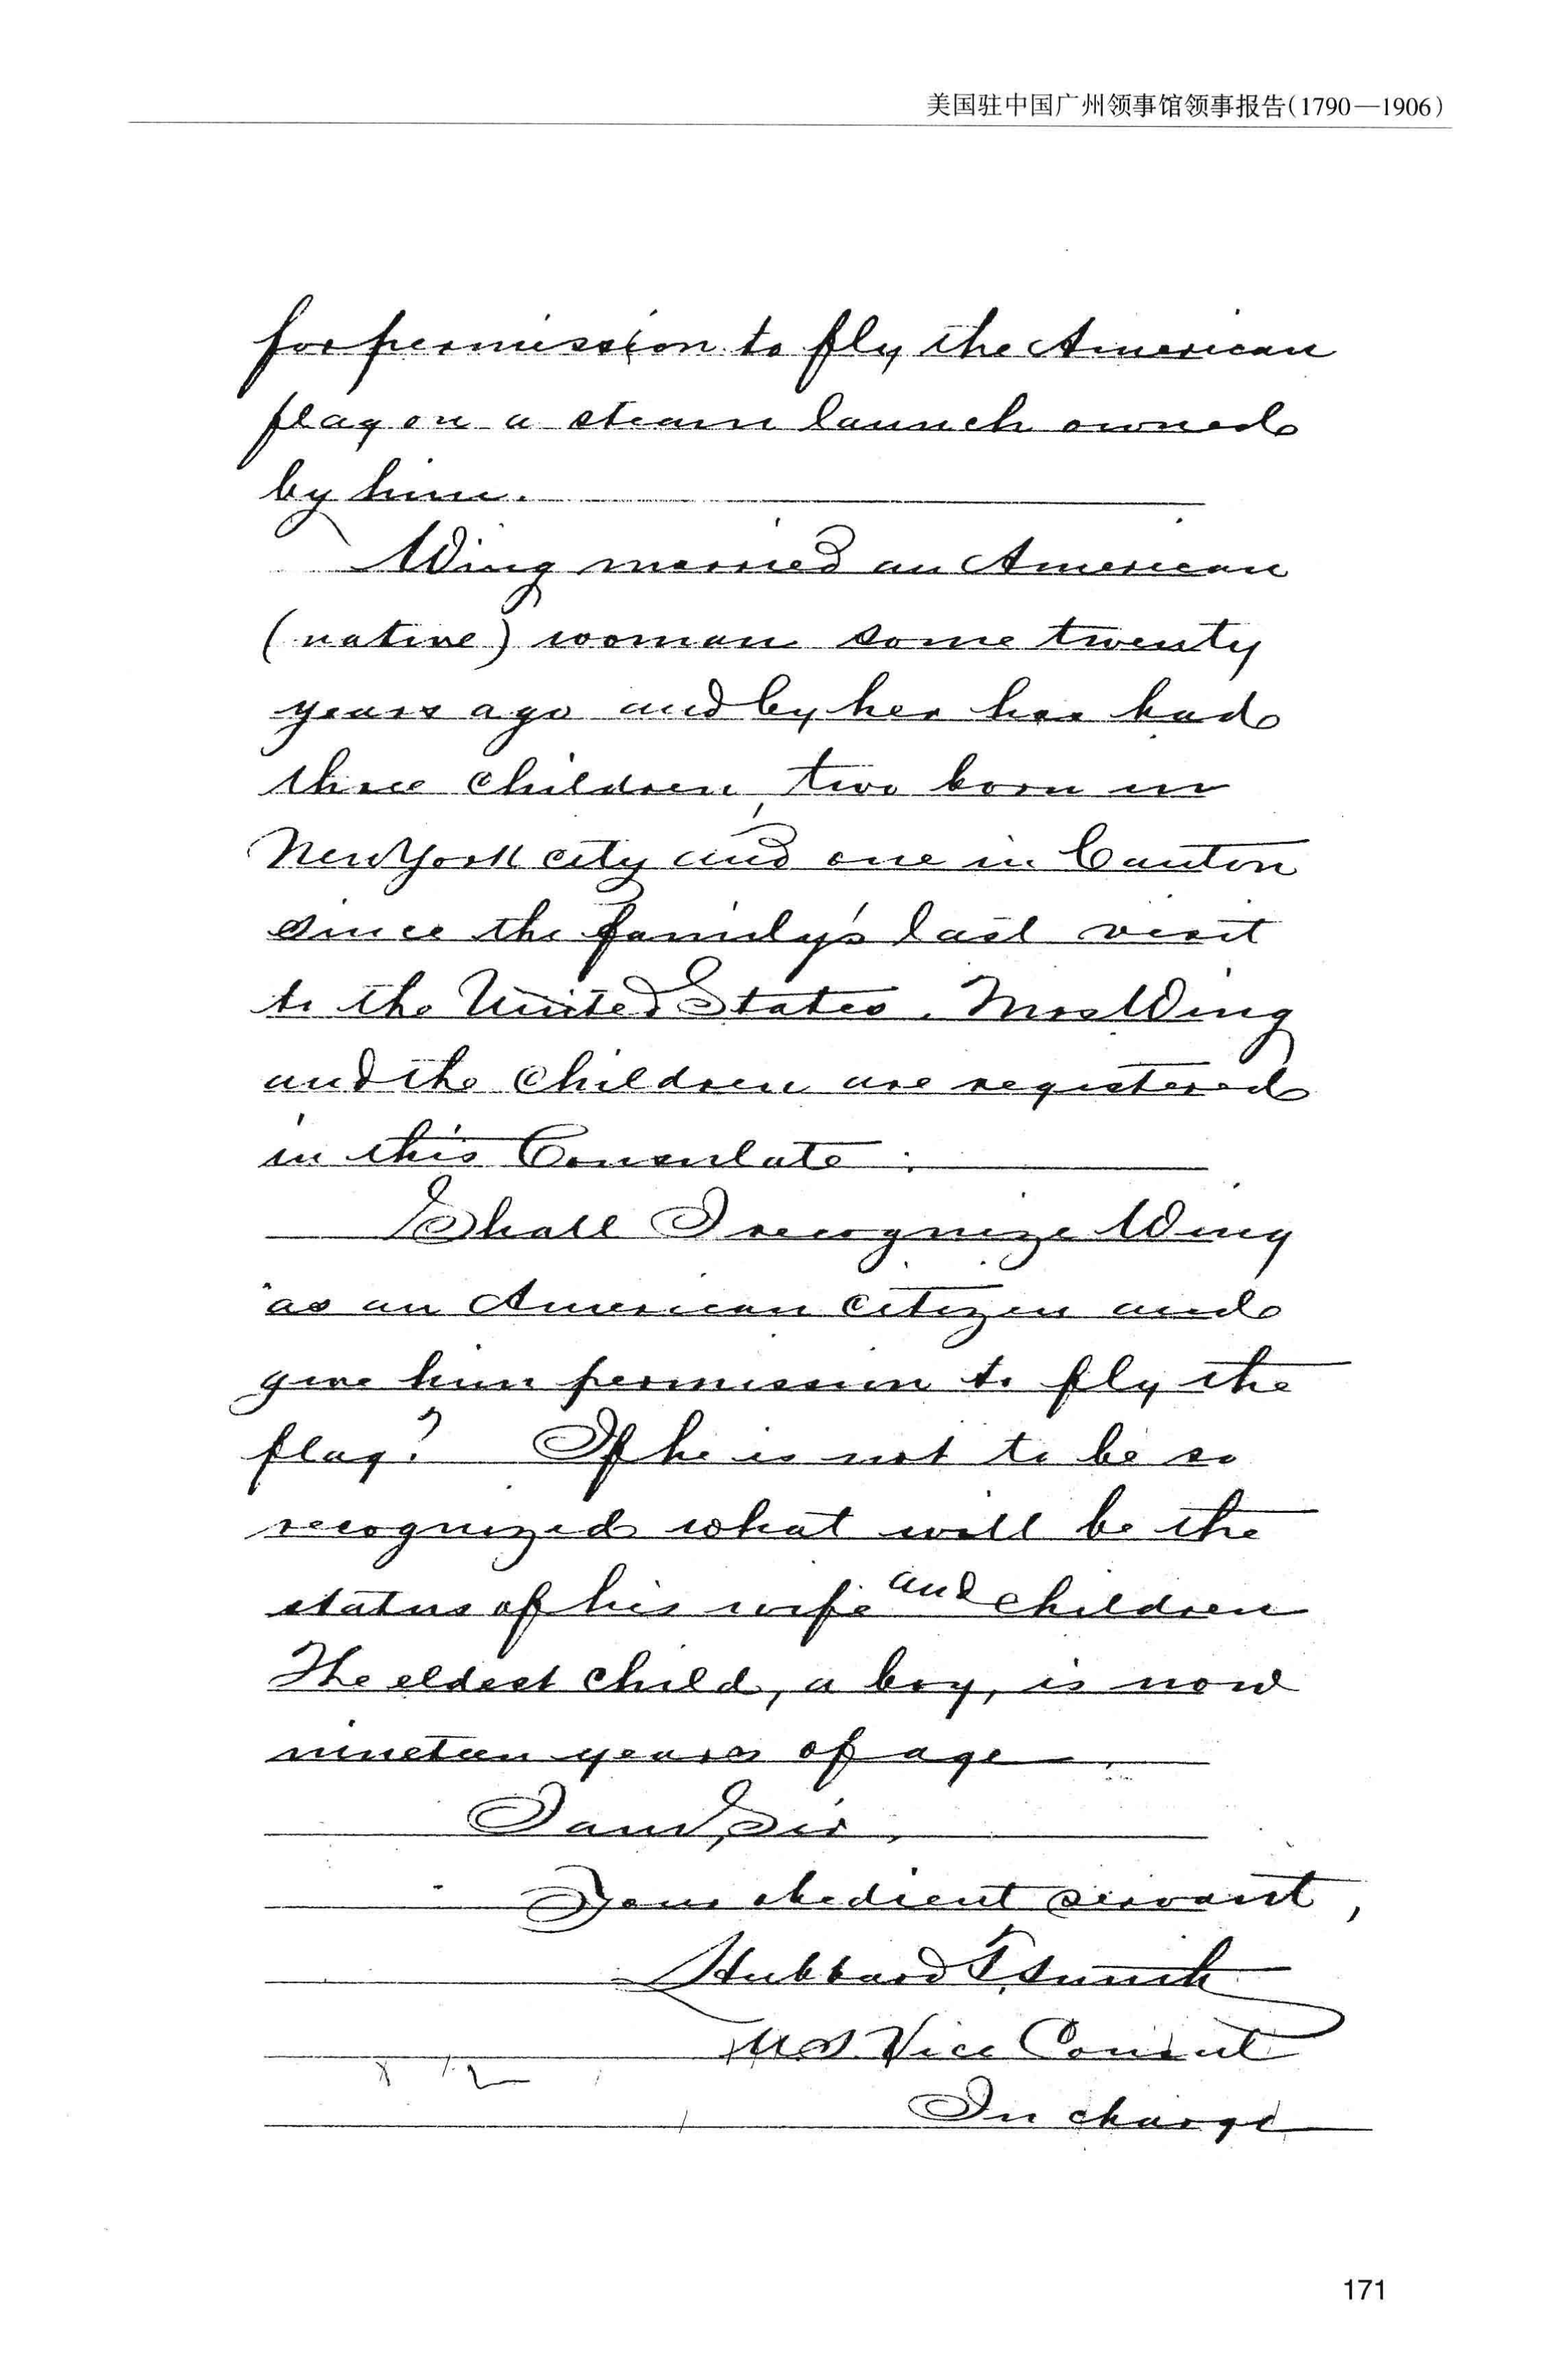 美国驻中国广州领事馆领事报告(1790—1906)
for permission to fly the American
flag on a steam launch owned
by him.
Wing married an American
(native) woman some twenty
years ago and by her has had
three children, two born in
New York city and one in Canton
since the family's last visit
to the United States. Mrs Wing
and the children are registered
in this Consulate.
Shall I recognize Wing
as an American citizen and
give him permission to fly the
flag? If he is not to be so
recognized what will be the
status of his wife and children
The eldest child, a boy, is now
nineteen years of age.
I am, Sir,
Your obedient servant,
Hubbard T. Smith
U.S. Vice Consul
In charge
171